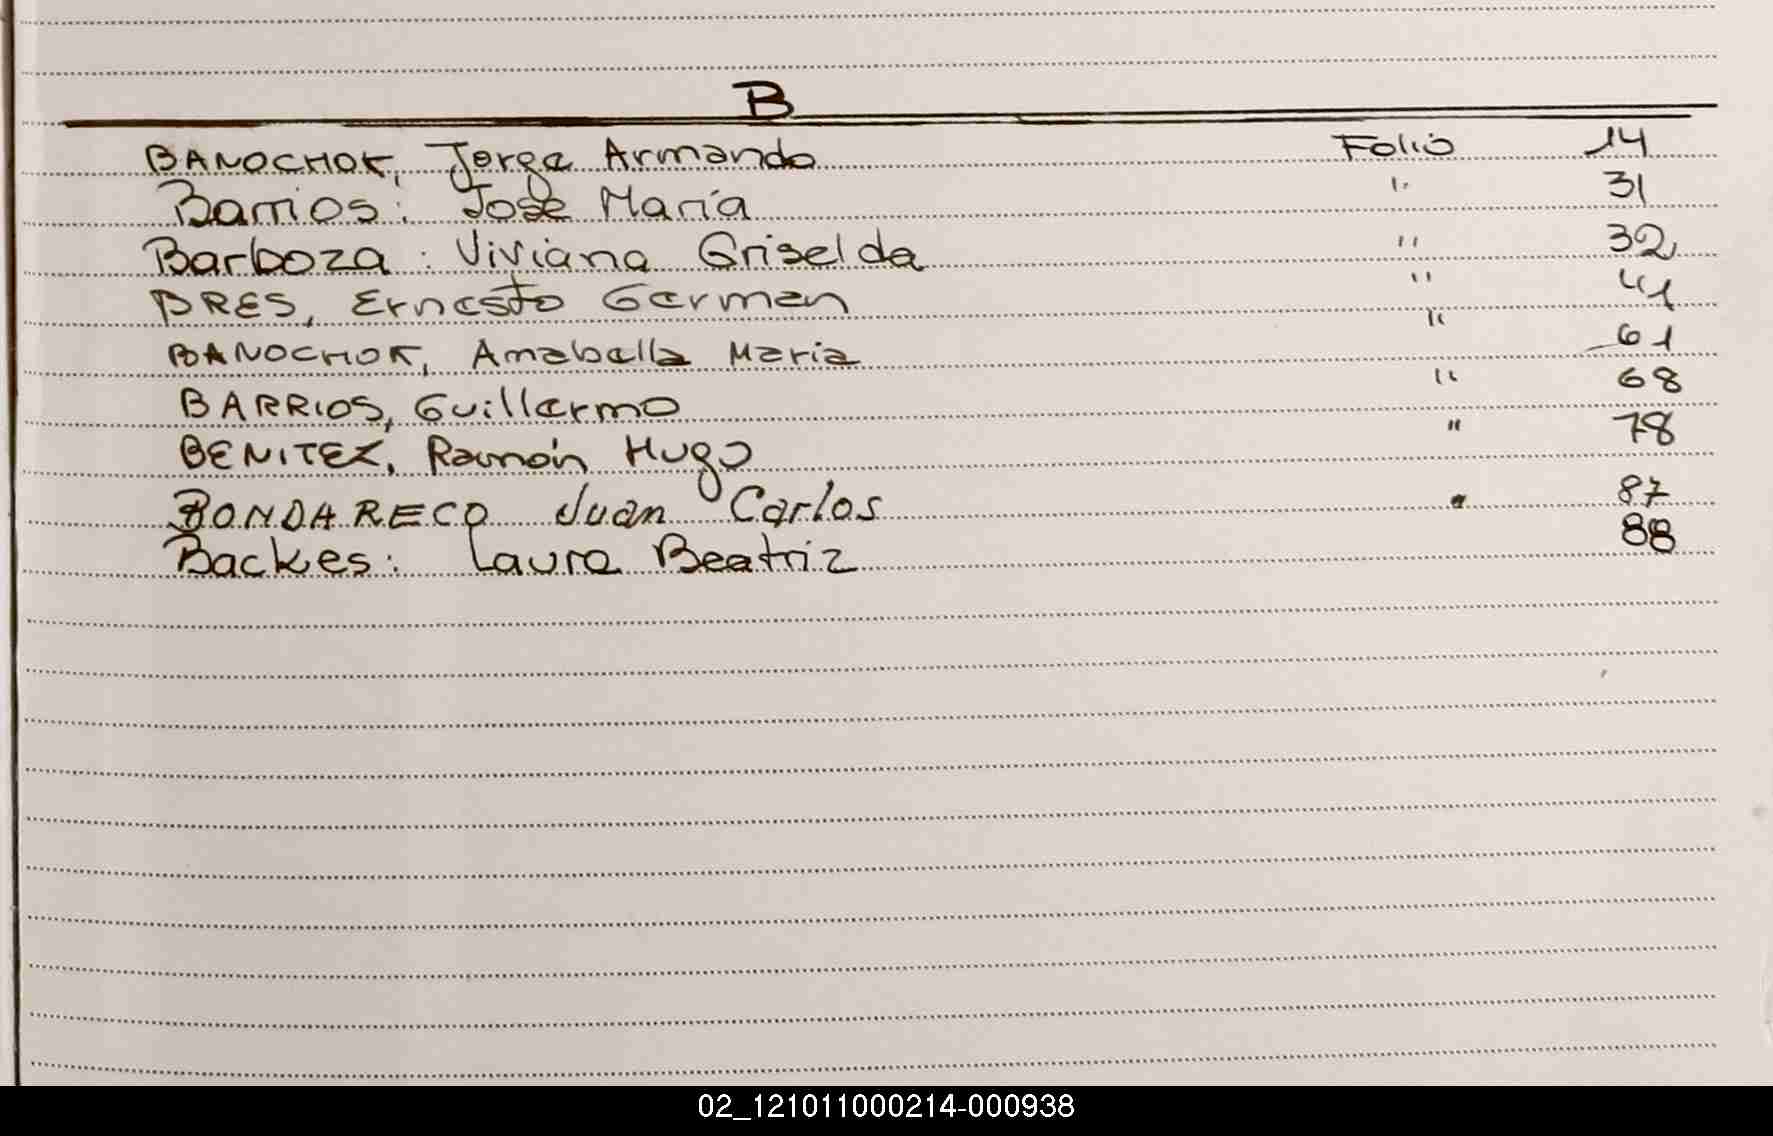 B
BANOCHOK, Jorge Armando Folio 14
Barrios: José María " 31
Barboza: Viviana Griselda " 32
BRES, Ernesto German " 41
BANOCHOK, Amabella Maria " 61
BARRIOS, Guillermo " 68
BENITEZ, Ramón Hugo " 78
BONDARECO Juan Carlos " 87
Backes: Laura Beatriz 88
02_121011000214-000938